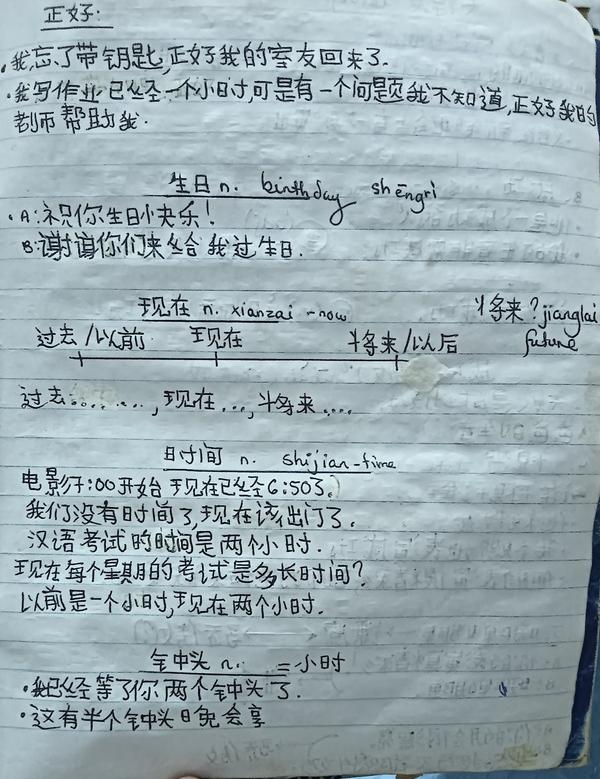 正好:
·我忘了带钥匙,正好我的室友回来了.
·我写作业已经一个小时,可是有一个问题我不知道,正好我的
老师帮助我.
生日 n. birthday shēngri
·A:祝你生日快乐!
B:谢谢你们来给我过生日.
现在 n. xianzai -now 将来?jianglai
过去/以前 现在 将来/以后 future
过去........,现在...,将来....
时间 n. shijian-time
电影7:00开始 现在已经6:50了。
我们没有时间了,现在该出门了.
汉语考试的时间是两个小时.
现在每个星期的考试是多长时间?
以前是一个小时,现在两个小时.
钟头 n. =小时
·我已经等了你两个钟头了.
·这有半个钟头